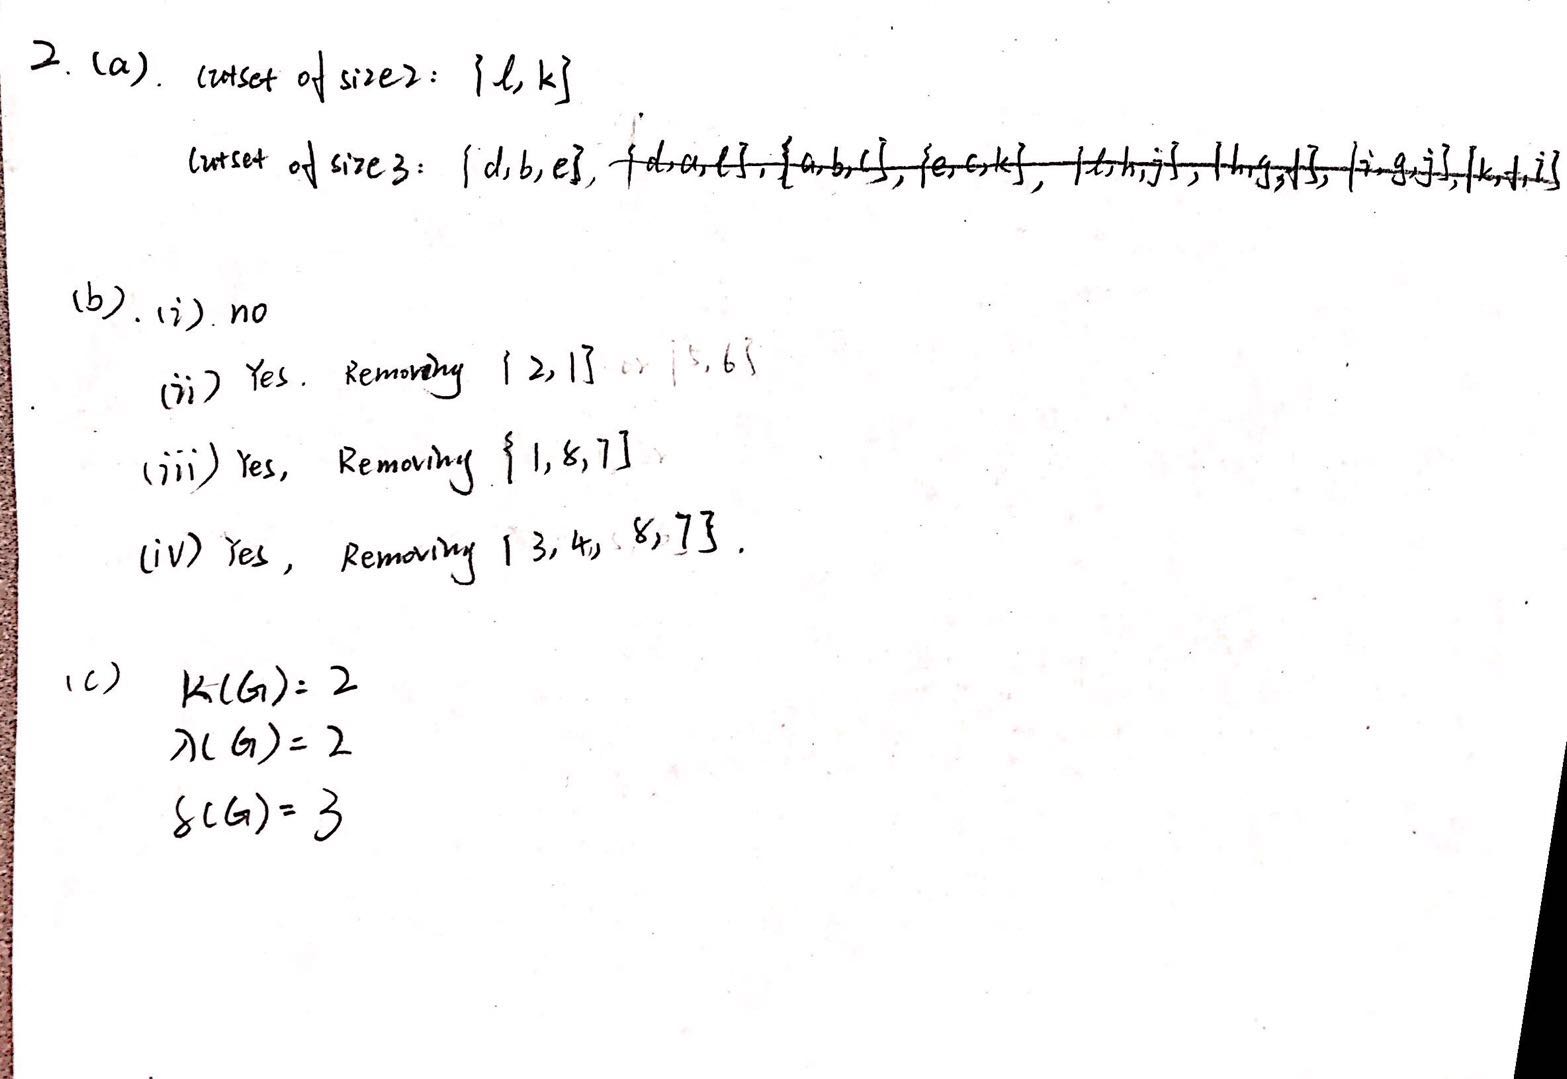 2. (a). cutset of size 2: {l, k}
cutset of size 3: {d, b, e}, {d, a, l}, {a, b, c}, {e, c, k}, {l, h, j}, {h, g, f}, {i, g, j}, {k, f, i}
(b). (i). no
(ii) Yes. Removing {2, 1} or {5, 6}
(iii) Yes, Removing {1, 8, 7}
(iv) Yes, Removing {3, 4, 8, 7}.
(c) K(G) = 2
λ(G) = 2
δ(G) = 3